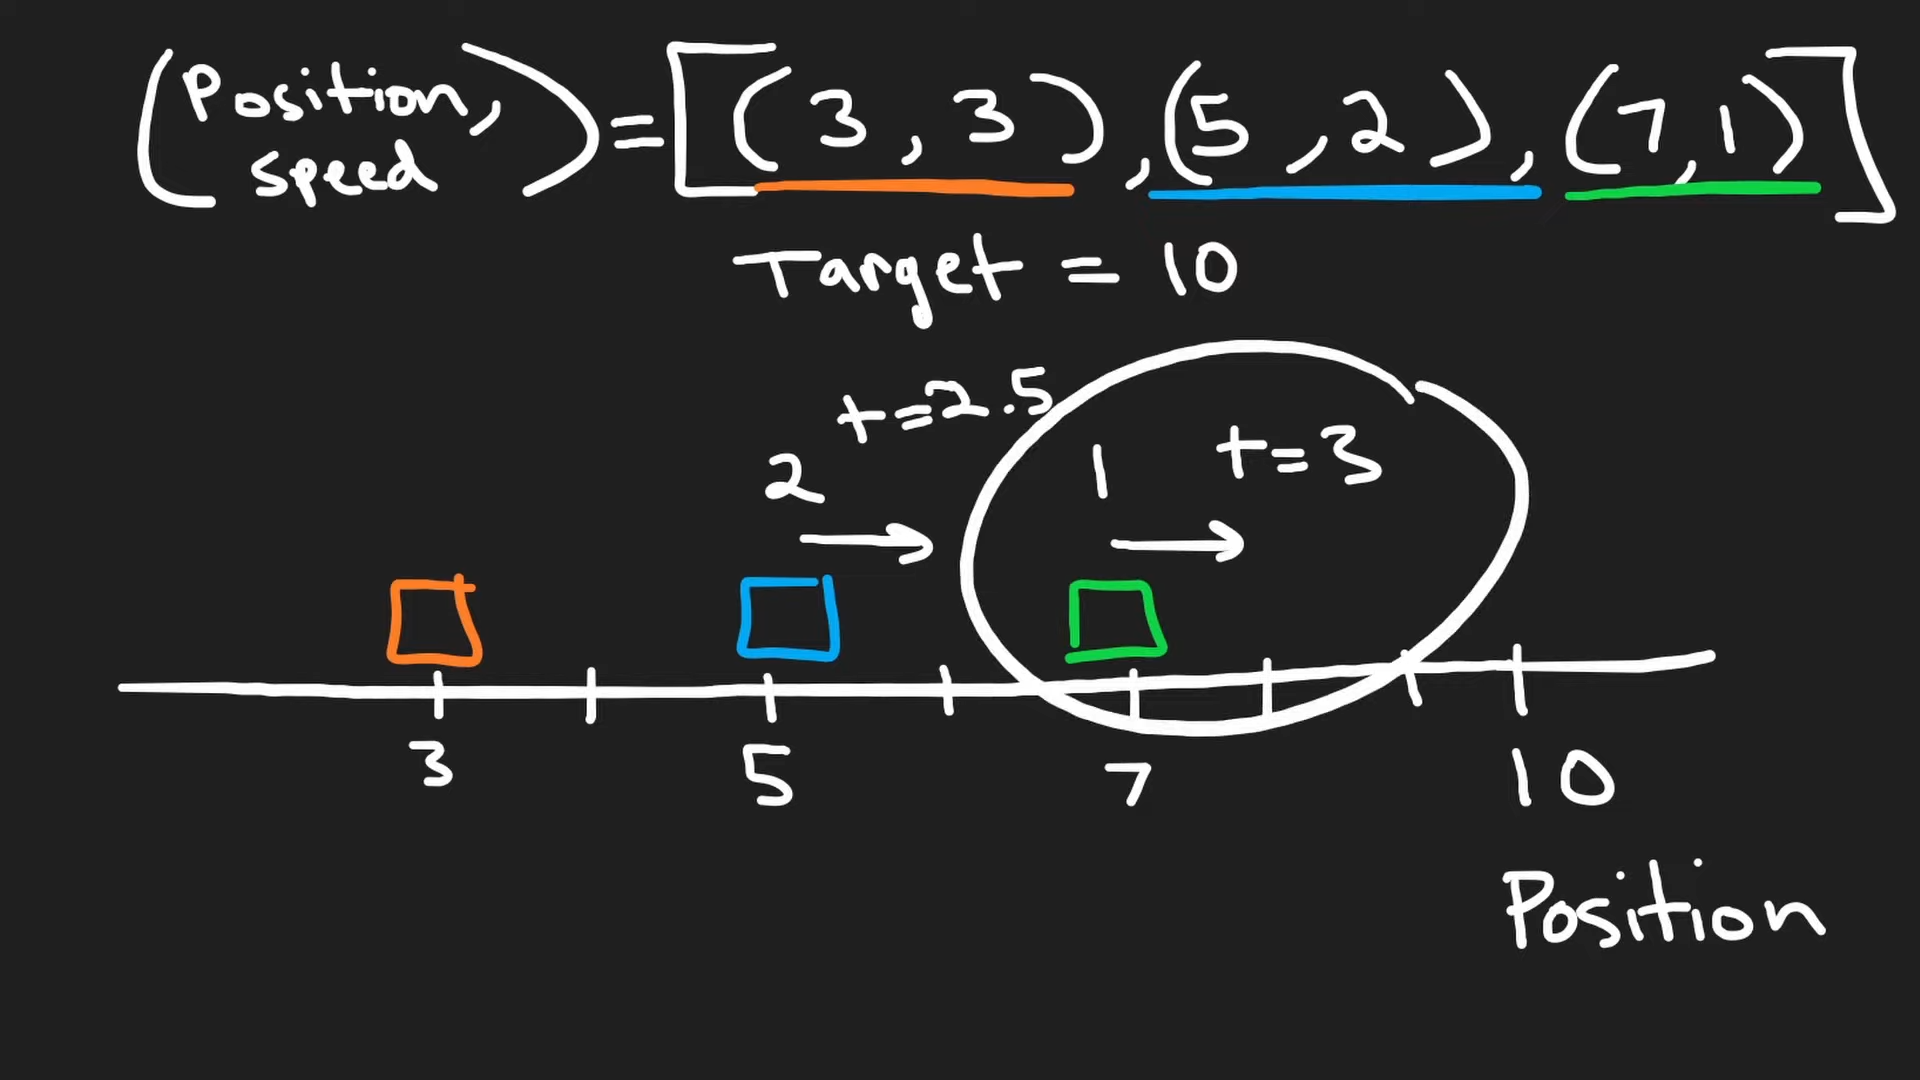 (Position, speed) = [(3, 3), (5, 2), (7, 1)]
Target = 10
t=2.5
2
1
t=3
3
5
7
10
Position